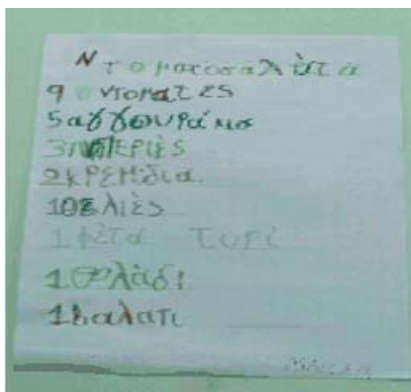 Ντοματοσαλὰτα
9 ντοματες
5 αγγουράκια
3 πιπΕΡιές
2 κΡΕΜίδια
10 Ελιές
1 φέτα τυρί
1 @λάδι
1 αλατι